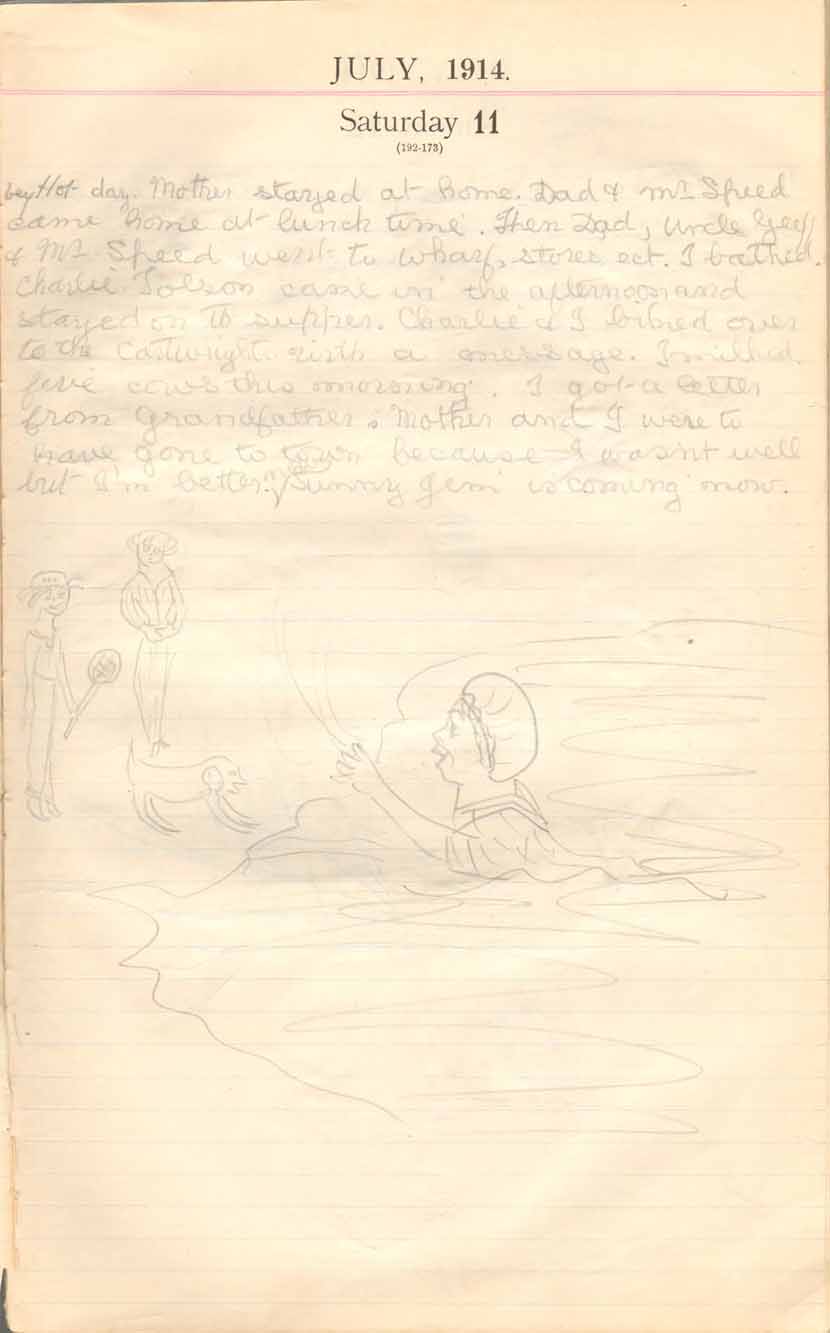 JULY, 1914.
Saturday 11
(192-173)
Hot day. Mother stayed at home. Dad & Mr Speed
came home at lunch time. Then Dad, Uncle
& Mr Speed went to wharf, stores ect. I bathed.
Charlie Tolson came in the afternoon and
stayed on to supper. Charlie & I over
to the with a message. I milked
five cows this morning. I got a letter
from Grandfather. Mother and I were to
have gone to town because I wasn't well
but I'm better. "Sunny Jem" is coming now.